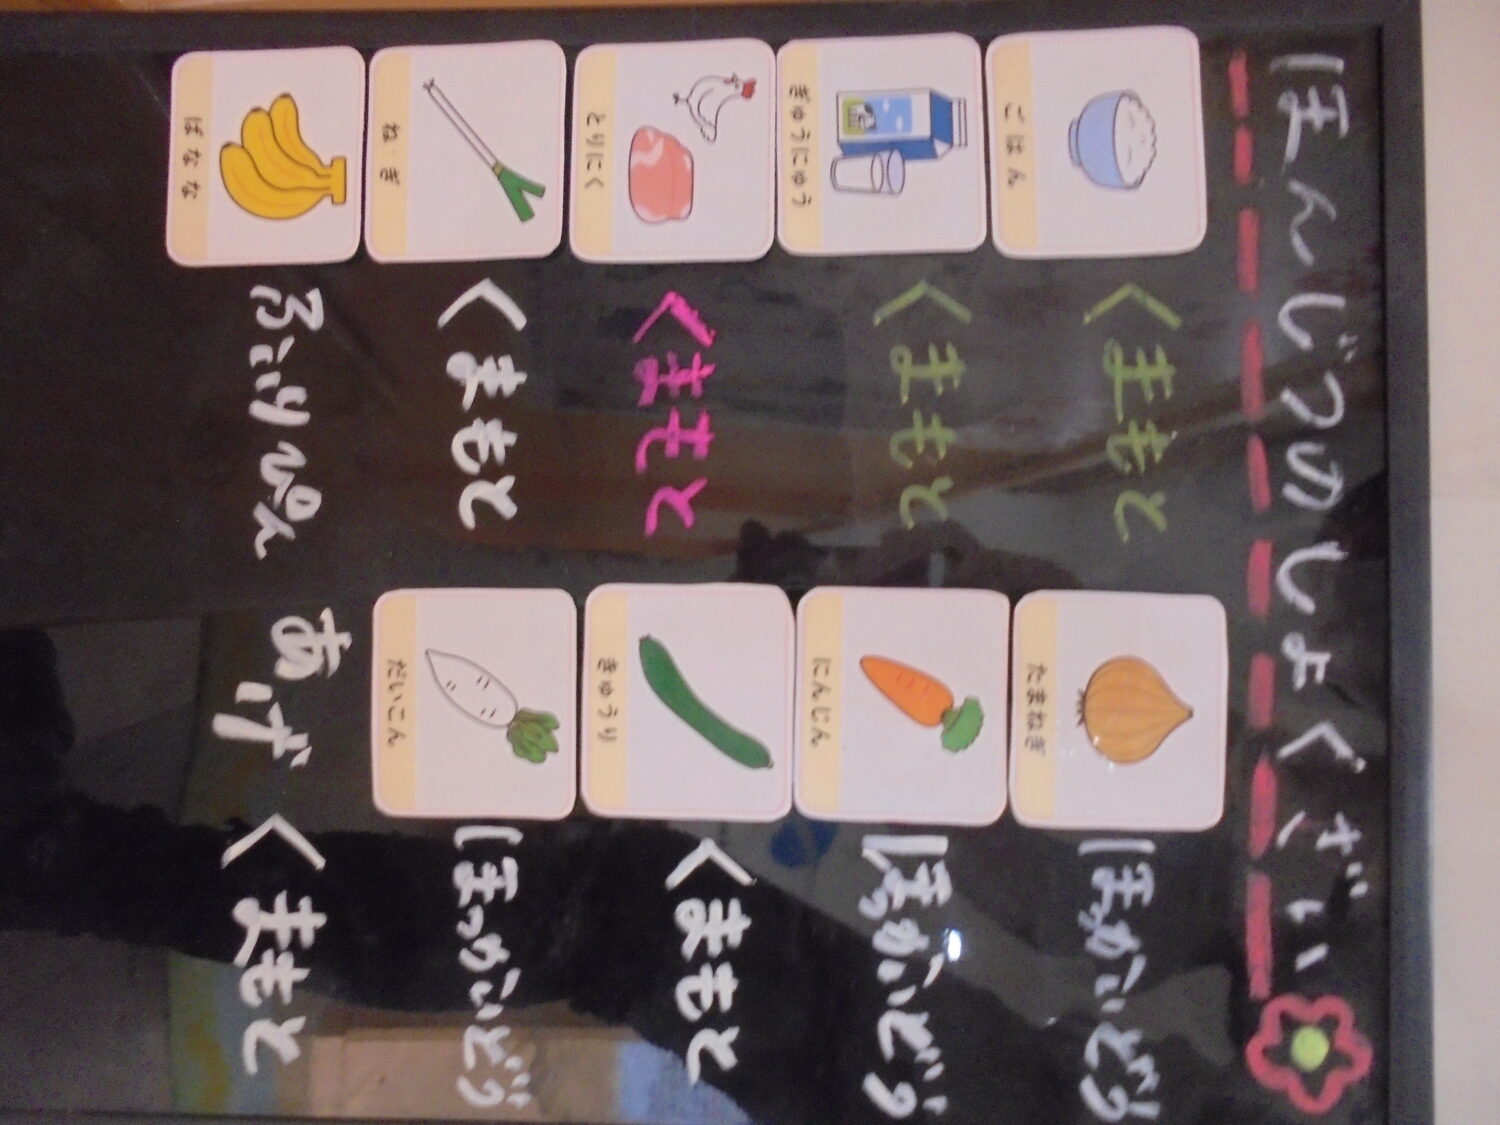 ほんじつのしょくざい
ごはん くまもと たまねぎ ほっかいどう
ぎゅうにゅう くまもと にんじん ほっかいどう
とりにく くまもと きゅうり くまもと
ねぎ くまもと だいこん ほっかいどう
ばなな ふぃりぴん あげ くまもと